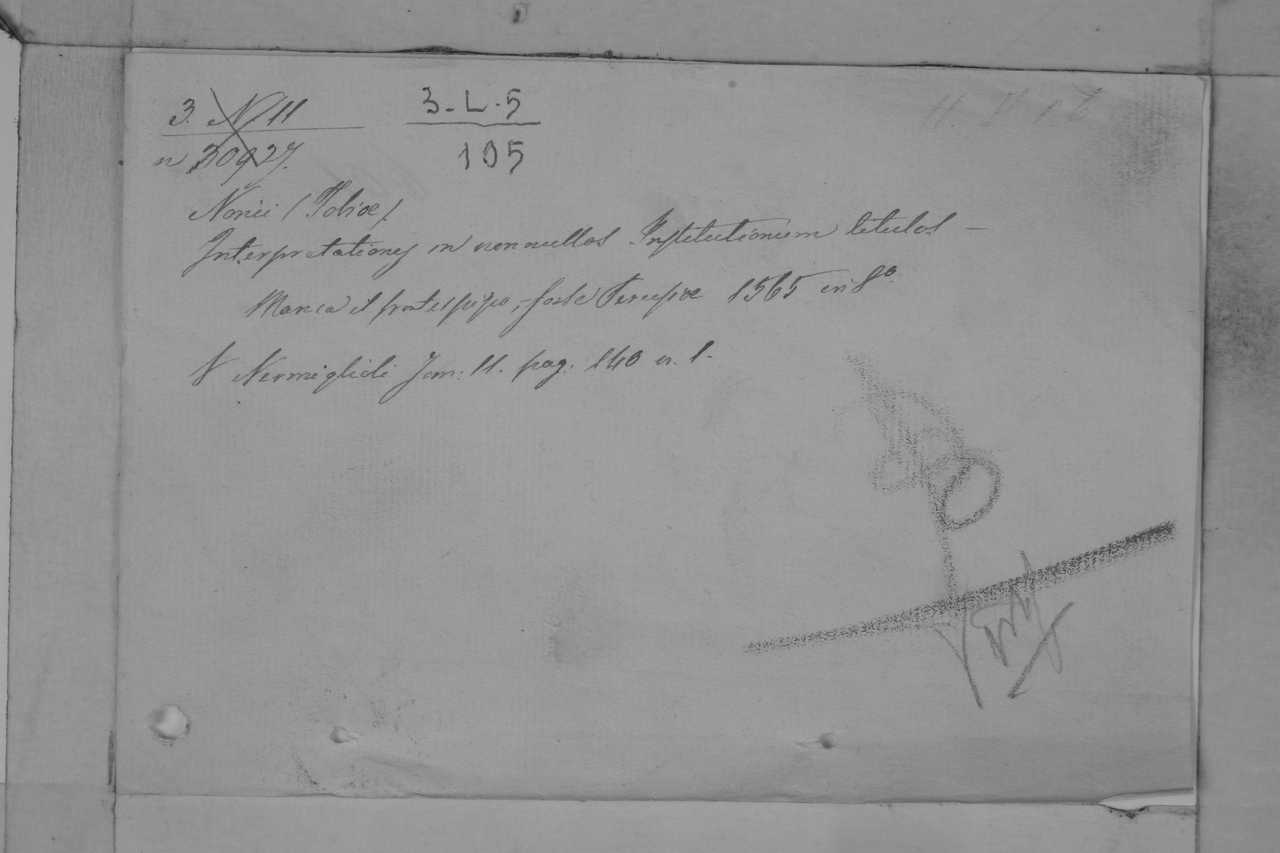 3. N 11
3-L-5
n 30927.
105
Nonii (Tobiae)
Interpretationes in nonnullos Institutionum titulos –
Manca il frontespizio, forse Perusiae 1565 in 8°.
V Vermiglioli Tom: 11. pag. 140 n. 1.